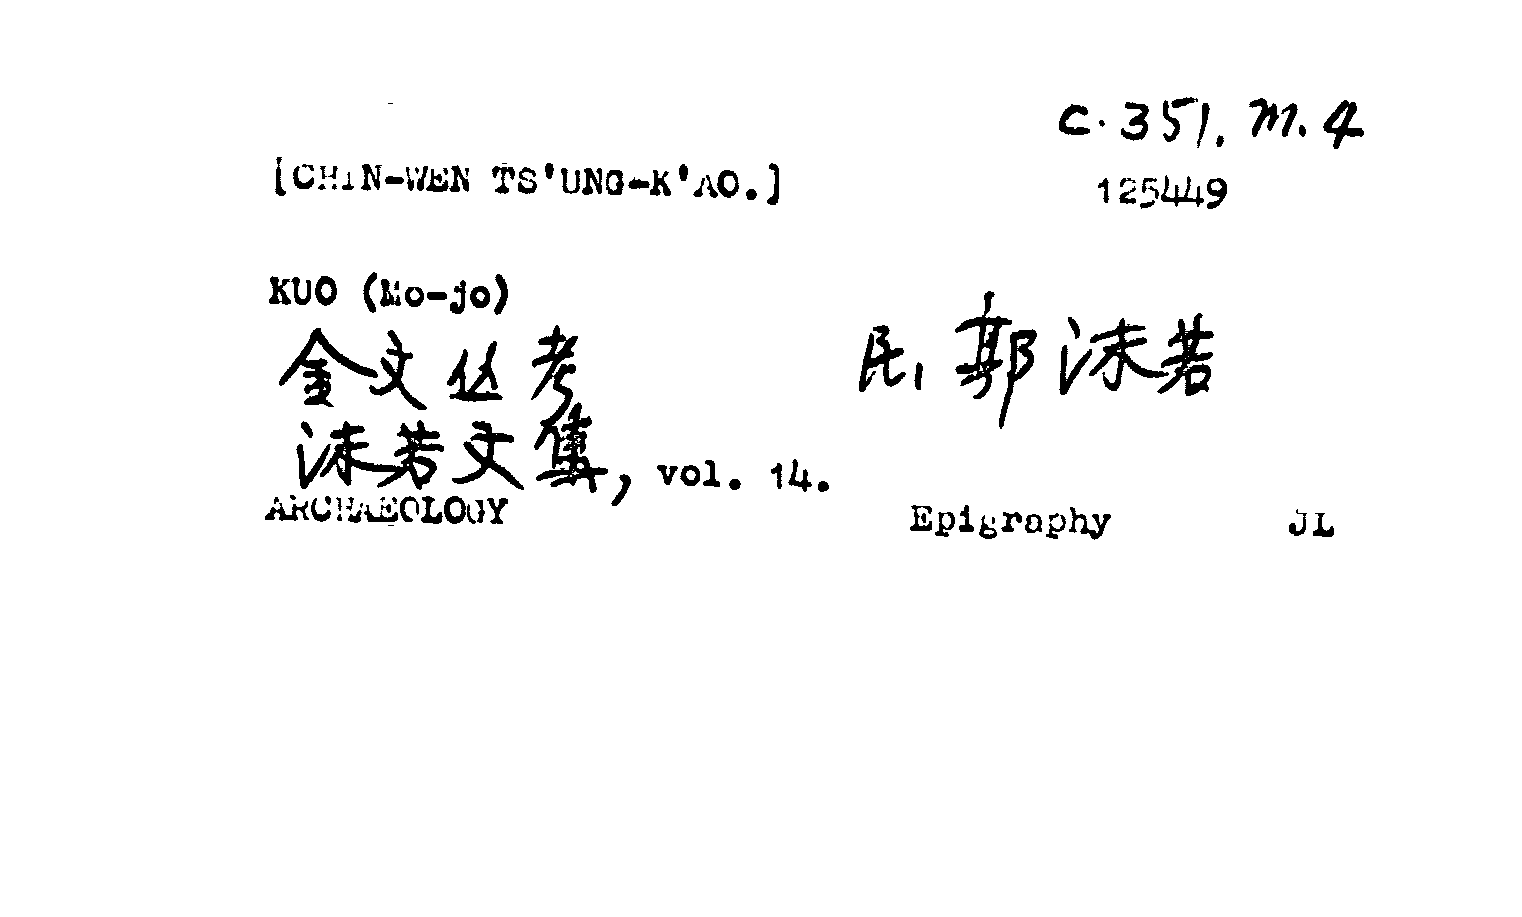 C. 351. M. 4
[CHIN-WEN TS'UNG-K'AO.]
125449
KUO (Mo-jo)
金文丛考
民, 郭沫若
沫若文集, vol. 14.
ARCHAEOLOGY
Epigraphy
JL